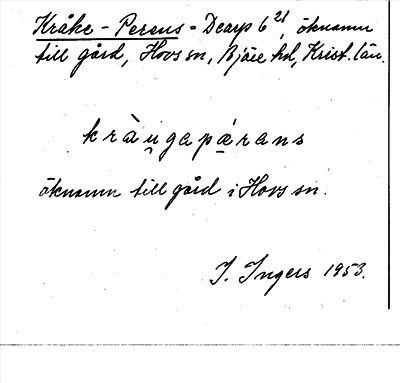 Kråke-Perens = Dearp 6²¹, öknamn
till gård, Hovs sn, Bjäre hd, Krist. län.
kràu̯gapæ̀rans
öknamn till gård i Hovs sn.
I. Ingers 1953.